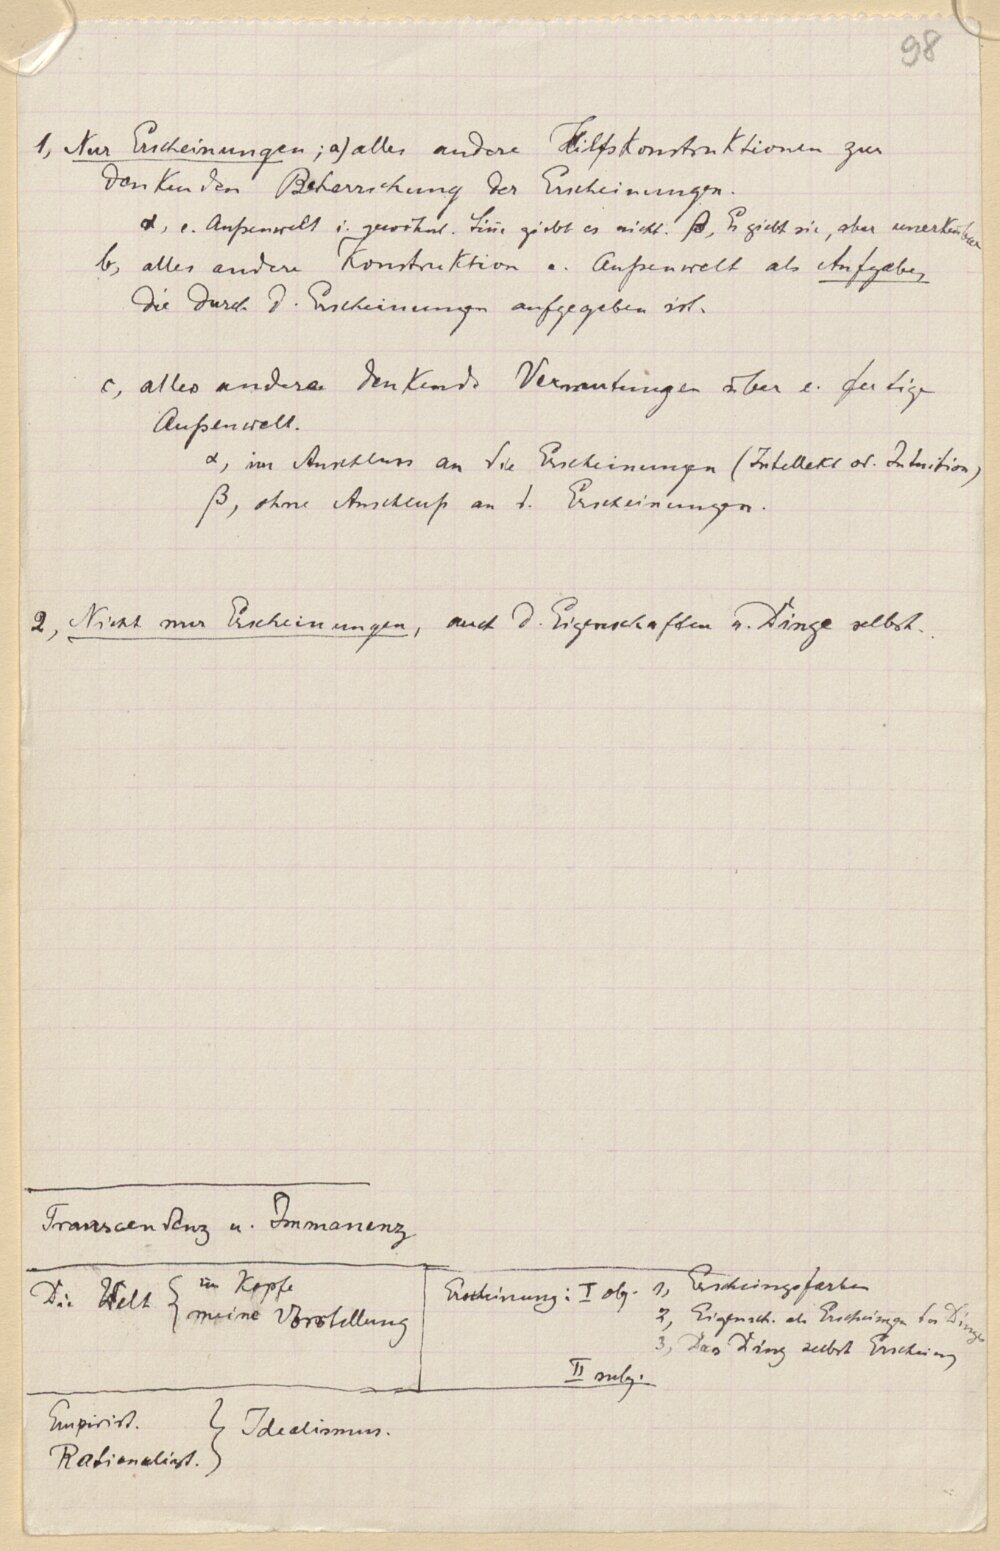 98
1, Nur Erscheinungen; a) alles andere Hilfskonstruktionen zur
denkenden Beherrschung der Erscheinungen.
α, e. Außenwelt i. gewöhnl. Sinne giebt es nicht. β, Es giebt sie, aber unerkennbar
b, alles andere Konstruktion e. Außenwelt als Aufgabe,
die durch d. Erscheinungen aufgegeben ist.
c, alles andere denkende Vermutungen über e. fertige
Außenwelt.
α, im Anschluss an die Erscheinungen (Intellekt od. Intuition)
β, ohne Anschluß an d. Erscheinungen.
2, Nicht nur Erscheinungen, auch d. Eigenschaften u. Dinge selbst.
Transcendenz u. Immanenz
Die Welt { im Kopfe
meine Vorstellung
Erscheinung: I obj. 1, Erscheingsfarben
2, Eigensch. als Erscheingen des Dinges
3, Das Ding selbst Erscheing
II subj.
Empirist.
Rationalist. } Idealismus.